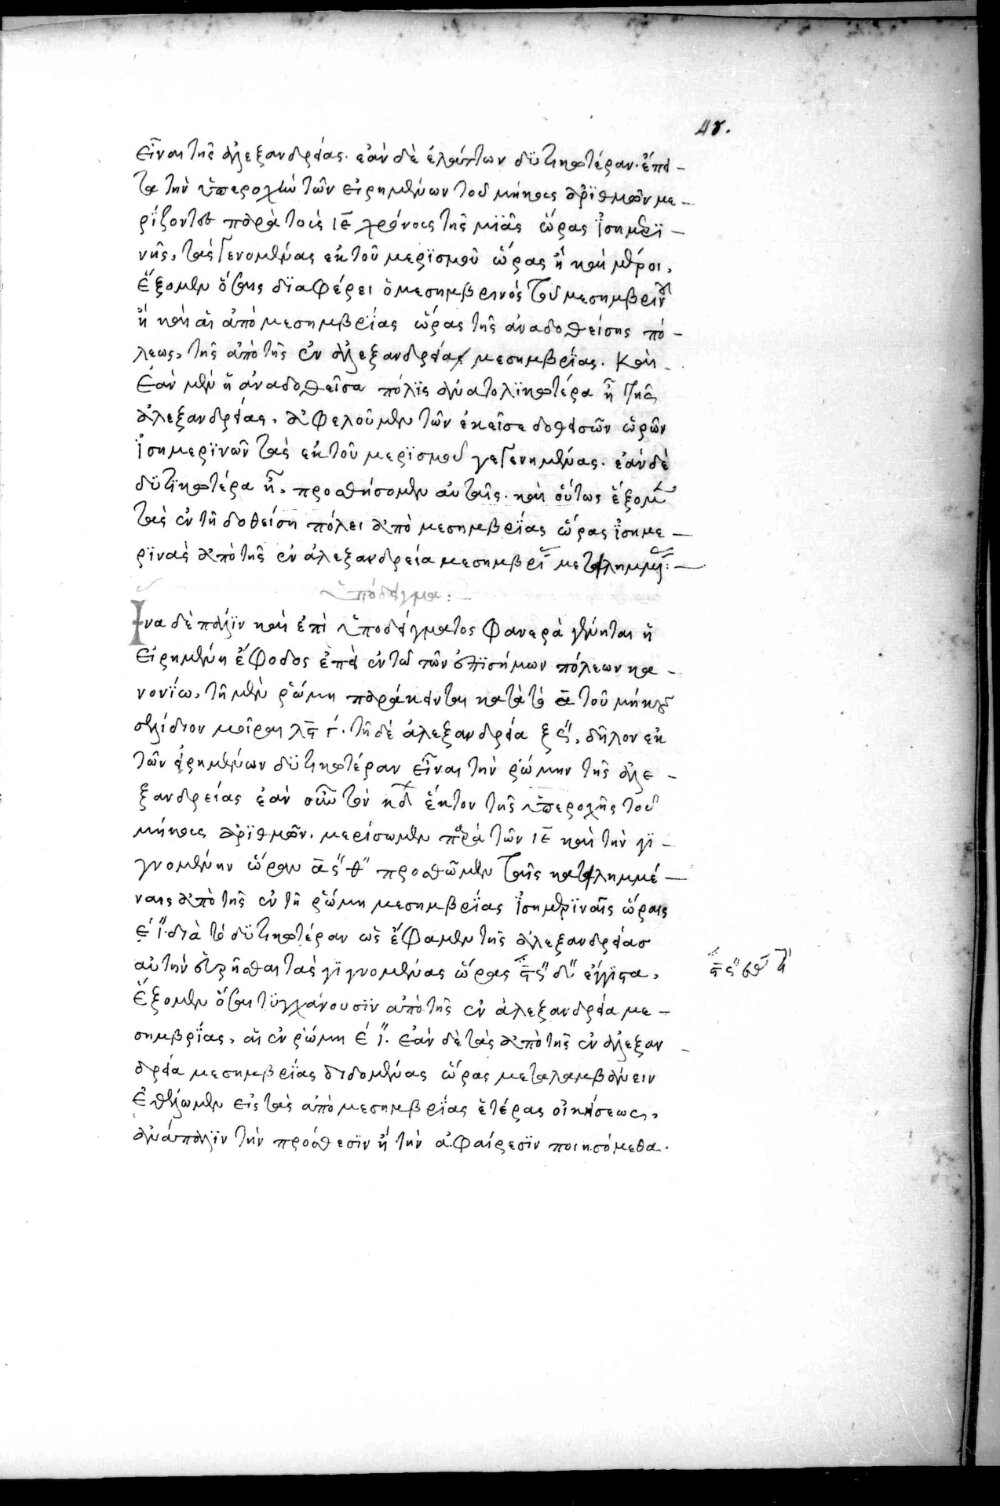 48.
εἶναι τῆς ἀλεξανδρείας. ἐὰν δὲ ἐλάττων δϋτικωτέραν. ἔπει-
τα τὴν ὑπεροχὴν τῶν εἰρημένων τοῦ μήκους ἀρϊθμῶν με-
ρίζοντες παρὰ τοὺς ιε χρόνους τῆς μιᾶς ὥρας ἰσημερϊ-
νῆς, τὰς γενομένας ἐκ τοῦ μερϊσμοῦ ὥρας ἢ καὶ μέροι,
ἕξομεν ὅσαις δϊαφέρει ὁ μεσημβρινὸς τοῦ μεσημβριν
ἢ καὶ αἱ ἀπὸ μεσημβρΐας ὥρας τῆς ἀναδοθείσης πό-
λεως, τῆς ἀπὸ τῆς ἐν ἀλεξανδρεία μεσημβρΐας. Καὶ
ἐὰν μὲν ἦ ἀναδοθεῖσα πόλϊς ἀνατολϊκωτέρα ἦ τῆς
ἀλεξανδρείας, ἀφελοῦμεν τῶν ἐκεῖσε δοθεισῶν ὡρῶν
ἰσημερϊνῶν τὰς ἐκ τοῦ μερϊσμοῦ γεγενημένας. ἐὰν δὲ
δϋτϊκωτέρα ἦ, προσθήσομεν αὐταῖς. καὶ οὕτως ἕξομεν
τὰς ἐν τῆ δοθείση πόλει ἀπὸ μεσημβρΐας ὥρας ἰσημε-
ρϊνὰς ἀπὸ τῆς ἐν ἀλεξανδρεία μεσημβρΐ
ὑπόδειγμα:
Ἵνα δὲ πάλϊν καὶ ἐπὶ ὑποδείγματος φανερὰ γένηται ἡ
εἰρημένη ἔφοδος ἐπεὶ ἐν τῶ τῶν ἐπϊσήμων πόλεων κα-
νονίω, τῆ μὲν ῥώμη παράκεινται κατὰ τὸ α τοῦ μήκους
σελίδιον μοῖραι λς γ. τῆ δὲ ἀλεξανδρεία ξ ς, δῆλον ἐκ
τῶν εἰρημένων δϋτικωτέραν εἶναι τὴν ῥώμην τῆς ἀλε-
ξανδρείας ἐὰν οὖν τὸν κδ ἕκτον τῆς ὑπεροχῆς τοῦ
μήκους ἀρϊθμὸν. μερίσωμεν παρὰ τῶν ιε καὶ τὴν γϊ-
γνομένην ὥραν α ς θ προσθῶμεν ταῖς κατειλημμέ-
ναις ἀπὸ τῆς ἐν τῆ ῥώμη μεσημβρΐας ἰσημερϊναῖς ὥραις
ε ι διὰ τὸ δϋτικωτέραν ὡς ἔφαμεν τῆς ἀλεξανδρείας
αὐτὴν τὰς γϊγνομένας ὥρας ϛ ς δ ἔγγϊστα,
ἕξομεν ὅσαι τϋγχάνουσϊν ἀπὸ τῆς ἐν ἀλεξανδρεία με-
σημβρΐας, αἱ ἐν ῥώμη ε ι. ἐὰν δὲ τὰς ἀπὸ τῆς ἐν ἀλεξαν
δρεία μεσημβρΐας διδομένας ὥρας μεταλαμβάνειν
ἐθέλωμεν εἰς τὰς ἀπὸ μεσημβρΐας ἑτέρας οἰκήσεως,
ἀνάπαλϊν τὴν πρόσθεσϊν ἢ τὴν ἀφαίρεσϊν ποιησόμεθα.